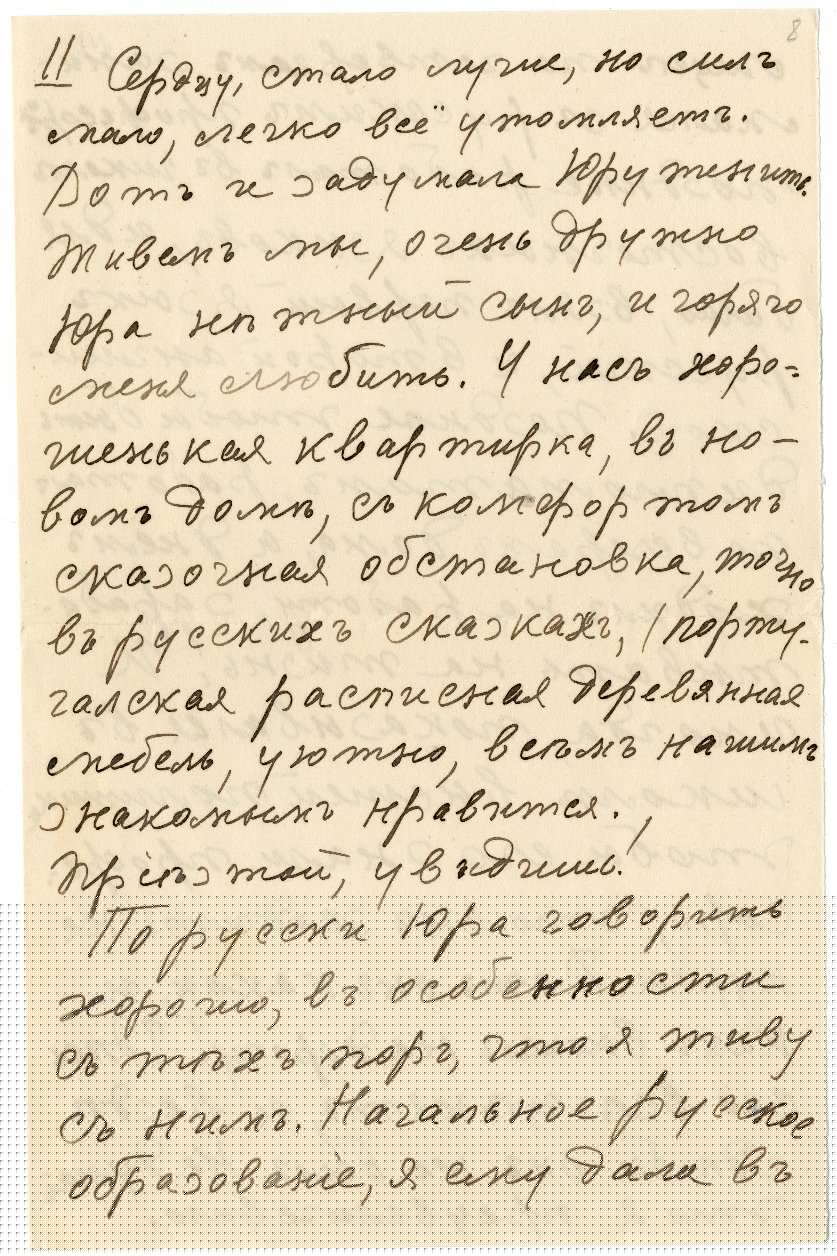 8
II Сердцу, стало лучше, но силъ
мало, легко всё утомляетъ.
Вотъ и задумала Юру женить.
Живемъ мы, очень дружно
Юра нѣжный сынъ, и горячо
меня любитъ. У насъ хоро=
шенькая квартирка, въ но–
вомъ домѣ, съ комфортомъ
сказочная обстановка, точно
въ русскихъ сказкахъ, (порту-
галская расписная деревянная
мебель, уютно, всѣмъ нашимъ
знакомымъ нравится.,
Пріѣзжай, увидишь!
По русски Юра говоритъ
хорошо, въ особенности
съ тѣхъ поръ, что я живу
съ нимъ. Начальное русское
образованіе, я ему дала въ